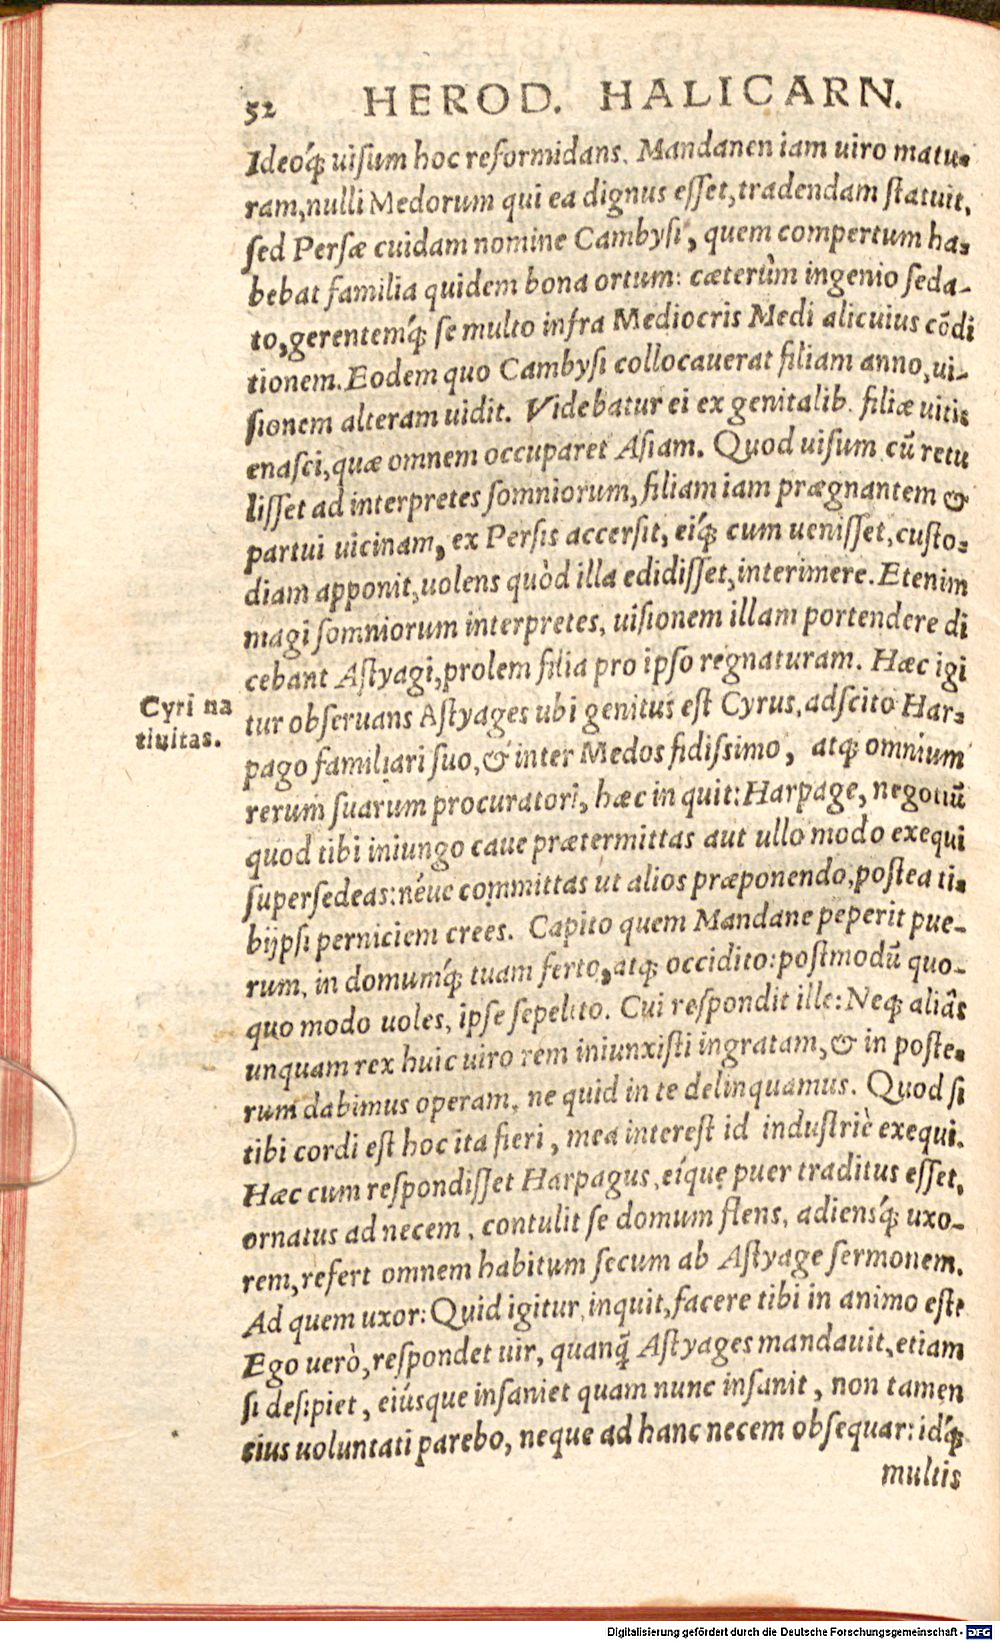 52 HEROD. HALICARN.
Ideoq́ꝫ uiſum hoc reformidans. Mandanen iam uiro matu-
ram, nulli Medorum qui ea dignus eſſet, tradendam ſtatuit,
ſed Perſæ cuidam nomine Cambyſi, quem compertum ha-
bebat familia quidem bona ortum: cæterùm ingenio ſeda-
to, gerentemq́ꝫ ſe multo infra Mediocris Medi alicuius cõdi
tionem. Eodem quo Cambyſi collocauerat filiam anno, ui-
ſionem alteram uidit. Videbatur ei ex genitalib. filiæ uitis
enaſci, quæ omnem occuparet Aſiam. Quod uiſum cũ retu
liſſet ad interpretes ſomniorum, filiam iam prægnantem &
partui uicinam, ex Perſis accerſit, eiq́ꝫ cum ueniſſet, cuſto-
diam apponit, uolens quòd illa edidiſſet, interimere. Etenim
magi ſomniorum interpretes, uiſionem illam portendere di
cebant Aſtyagi, prolem filia pro ipſo regnaturam. Hæc igi
Cyri na
tiuitas.
tur obſeruans Aſtyages ubi genitus eſt Cyrus, adſcito Har-
pago familiari ſuo, & inter Medos fidiſsimo, atqꝫ omnium
rerum ſuarum procuratori, hæc in quit: Harpage, negotiũ
quod tibi iniungo caue prætermittas aut ullo modo exequi
ſuperſedeas: néue committas ut alios præponendo, poſtea ti-
bijpſi perniciem crees. Capito quem Mandane peperit pue-
rum, in domumq́ꝫ tuam ferto, atqꝫ occidito: poſtmodũ quo-
quo modo uoles, ipſe ſepelito. Cui reſpondit ille: Neqꝫ aliâs
unquam rex huic uiro rem iniunxiſti ingratam, & in poſte-
rum dabimus operam, ne quid in te delinquamus. Quod ſi
tibi cordi eſt hoc ita fieri, mea intereſt id induſtriè exequi.
Hæc cum reſpondiſſet Harpagus, eíque puer traditus eſſet,
ornatus ad necem, contulit ſe domum flens, adiensq́ꝫ uxo-
rem, refert omnem habitum ſecum ab Aſtyage ſermonem.
Ad quem uxor: Quid igitur, inquit, facere tibi in animo eſt?
Ego uerò, reſpondet uir, quanq̃ Aſtyages mandauit, etiam
ſi deſipiet, eiúsque inſaniet quam nunc inſanit, non tamen
eius uoluntati parebo, neque ad hanc necem obſequar: idq́ꝫ
multis
Digitalisierung gefördert durch die Deutsche Forschungsgemeinschaft - DFG